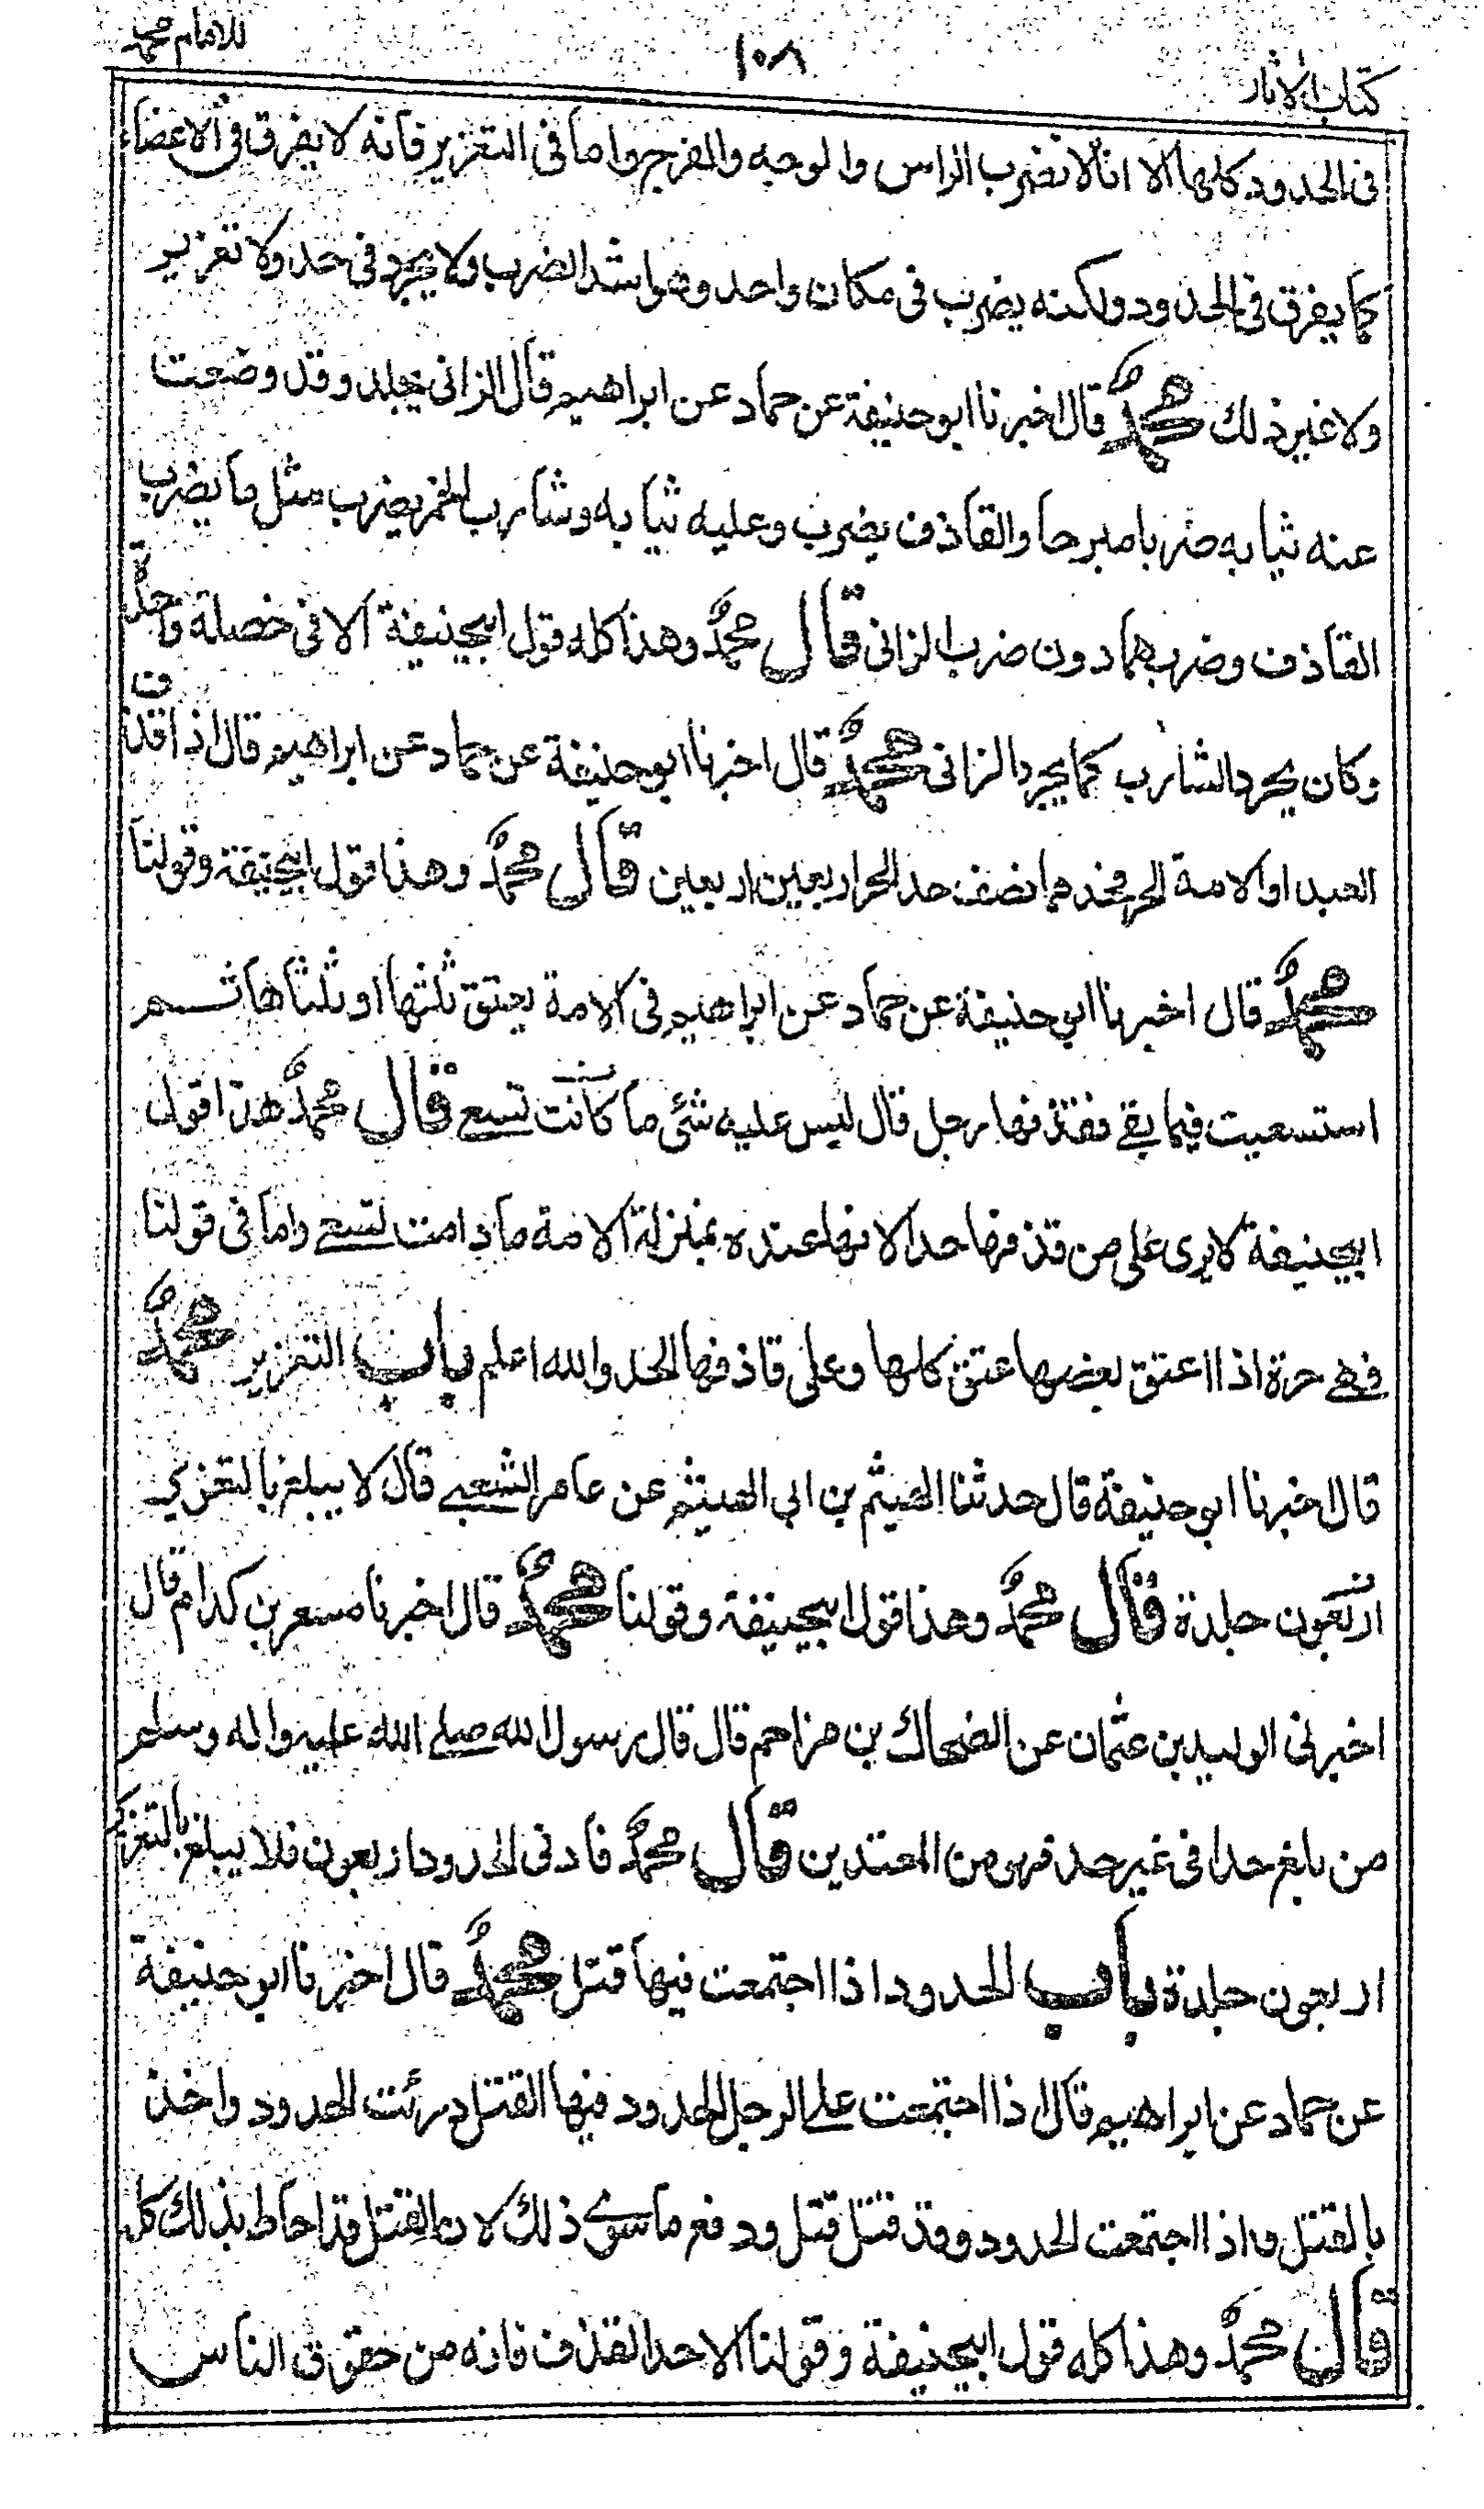 كتاب الآثار
١٠٨
للامام محمد
فى الحدود كلها الا انا لا نضرب الراس والوجه والفرج واما فى التعزير فانه لا يفرق فى الاعضاء
كما يفرق فى الحدود ولكنه يضرب فى مكان واحد وهو اشد الضرب ولا يجرد فى حد ولا تعزير
ولا غير ذلك محمدٌ قال اخبرنا ابو حنيفة عن حماد عن ابراهيم قال الزانى يجلد وقد وضعت
عنه ثيابه ضربا مبرحا والقاذف يضرب وعليه ثيابه وشارب الخمر يضرب مثل ما يضرب
القاذف وضربهما دون ضرب الزانى قال محمدٌ وهذا كله قول ابيحنيفة الا فى خصلة واحدة
وكان يجرد الشارب كما يجرد الزانى محمدٌ قال اخبرنا ابو حنيفة عن حماد عن ابراهيم قال اذا قذف
العبد او الامة الحر فحدهما نصف حد الحر اربعين اربعين قال محمدٌ وهذا قول ابيحنيفة وقولنا
محمدٌ قال اخبرنا ابو حنيفة عن حماد عن ابراهيم فى الامة يعتق ثلثها او ثلثاها ثم
استسعيت فيما بقے فقذفها رجل قال ليس عليه شئ ما كانت تسعے قال محمدٌ هذا قول
ابيحنيفة لا يرى على من قذفها حدا لانها عنده بمنزلة الامة ما دامت تسعے واما فى قولنا
فهے حرة اذا اعتق بعضها عتق كلها وعلى قاذفها الحد والله اعلم باب التعزير محمدٌ
قال اخبرنا ابو حنيفة قال حدثنا الهيثم بن ابى الهيثم عن عامر الشعبے قال لا يبلغ بالتعزير
اربعون جلدة قال محمدٌ وهذا قول ابيحنيفة وقولنا محمدٌ قال اخبرنا مسعر بن كدام قال
اخبرنى الوليد بن عثمان عن الضحاك بن مزاحم قال قال رسول الله صلے الله عليه واله وسلم
من بلغ حدا فى غير حد فهو من المعتدين قال محمدٌ فادنى الحدود اربعون فلا يبلغ بالتعزير
اربعون جلدة باب الحدود اذا اجتمعت فيها قتل محمدٌ قال اخبرنا ابو حنيفة
عن حماد عن ابراهيم قال اذا اجتمعت على الرجل الحدود فيها القتل درئت الحدود واخذ
بالقتل واذا اجتمعت الحدود وقد قتل قتل ودفع ما سوى ذلك لان القتل قد احاط بذلك كله
قال محمدٌ وهذا كله قول ابيحنيفة وقولنا الا حد القذف فانه من حقوق الناس